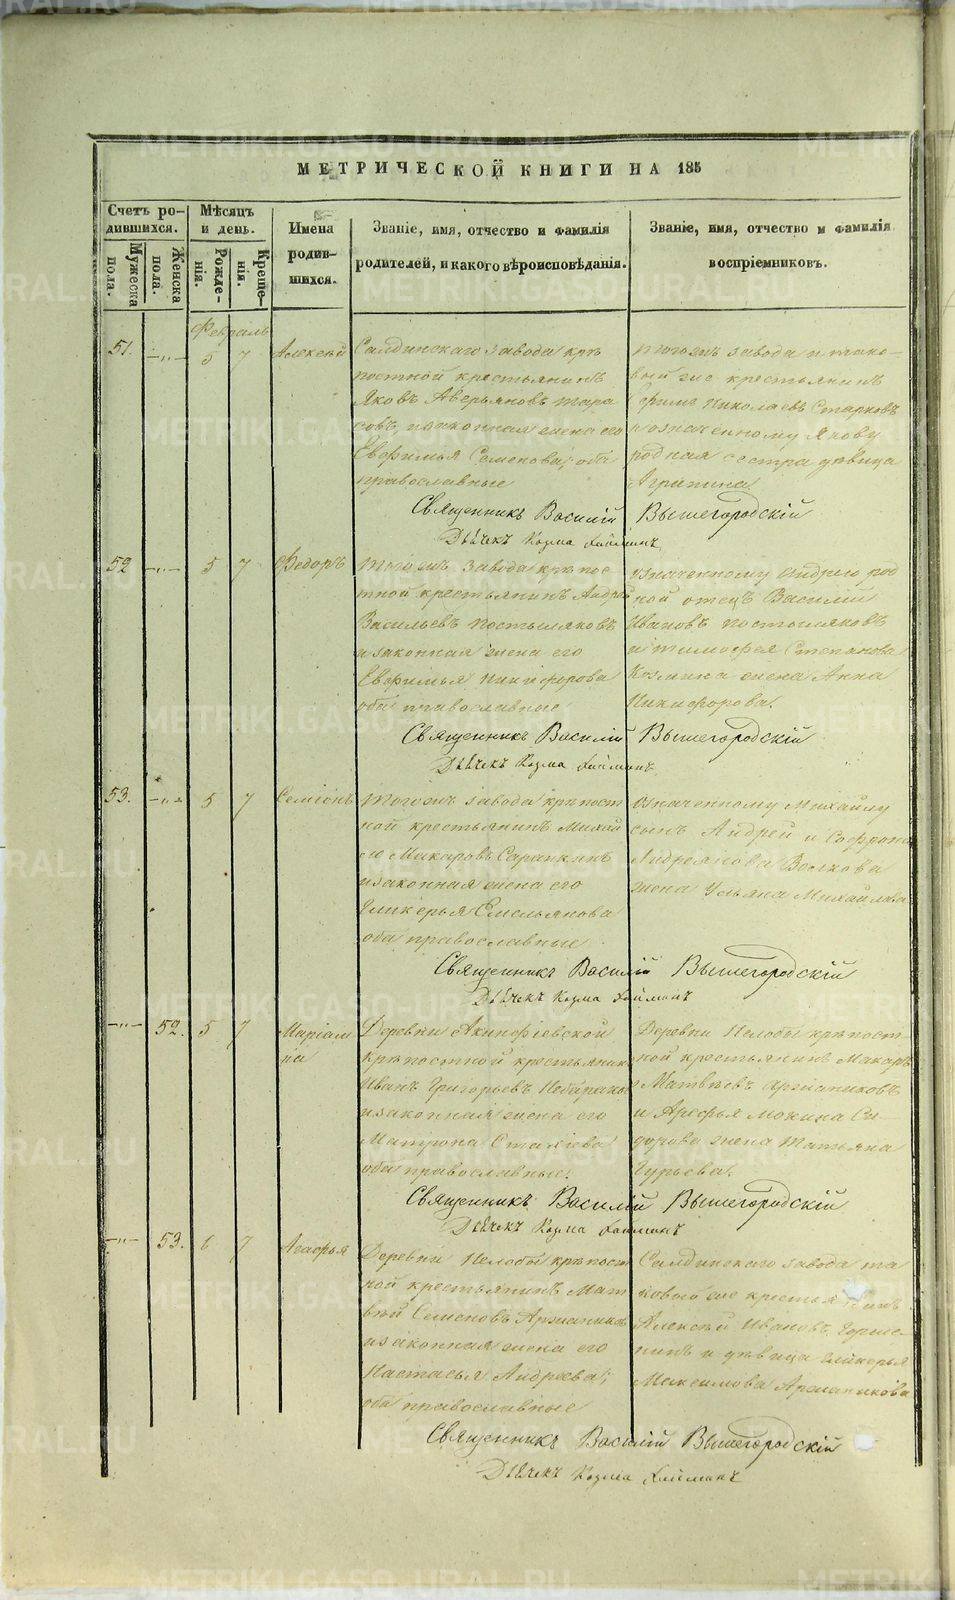 МЕТРИЧЕСКОЙ КНИГИ НА 185
Счетъ ро-
дившихся.
Мужеска
пола.
Женска
пола.
Мѣсяцъ
и день.
Рожде-
нія.
Креще-
нія.
Имена
родив-
шихся.
Званіе, имя, отчество и фамилія
родителей, и какого вѣроисповѣданія.
Званіе, имя, отчество и фамилія
воспріемниковъ.
Февраль
51. 5 7 Алексѣй
Салдинскаго завода крѣ
постной крестьянинъ
Яковъ Аверьяновъ Тара
совъ, и законная жена его
Евфимья Семенова; оба
православные
тогожъ завода и тако-
вый же крестьянинъ
Николаевъ Старковъ
и означенному Якову
родная сестра дѣвица
Агрипина.
Священникъ Василій Вышегородскій
Дьячекъ Козма
52 5 7 Федоръ
Тогожъ завода крѣпос
тной крестьянинъ Андрей
Васильевъ Постыляковъ
и законная жена его
Евфимья Никифорова
оба православные
означенному Андрею род
ной отецъ Василій
Ивановъ Постыляковъ
и Тимофея Степанова
Козмина жена Анна
Никифорова.
Священникъ Василій Вышегородскій
Дьячекъ Козма
53. 5 7 Семіонъ
Тогожъ завода крѣпост
ной крестьянинъ Михай
ло Макаровъ
и законная жена его
Гликерья Емельянова
оба православные
означенному Михайлу
сынъ Андрей и Софрона
Волкова
жена Ульяна Михайлова
Священникъ Василій Вышегородскій
Дьячекъ Козма
52. 5 7 Маріам
на
Деревни Акинфіевской
крѣпостной крестьянинъ
Иванъ Григорьевъ
и законная жена его
Матрона Стахіева
оба православные.
Деревни Нелобы крѣпост-
ной крестьянинъ Макаръ
Матвѣевъ Аржаниковъ
и Арефья Мокина Си-
дорова жена Татьяна
Гурьева.
Священникъ Василій Вышегородскій
Дьячекъ Козма
53. 6 7 Агафья
Деревни Нелобы крѣпост
ной крестьянинъ Мат
вѣй Семеновъ Аржаниковъ
и законная жена его
Настасья Андреева;
оба православные
Салдинскаго завода та
ковый же крестьянинъ
Алексѣй Ивановъ
и дѣвица Гликерья
Максимова Аржаникова
Священникъ Василій Вышегородскій
Дьячекъ Козма
METRIKI.GASO-URAL.RU